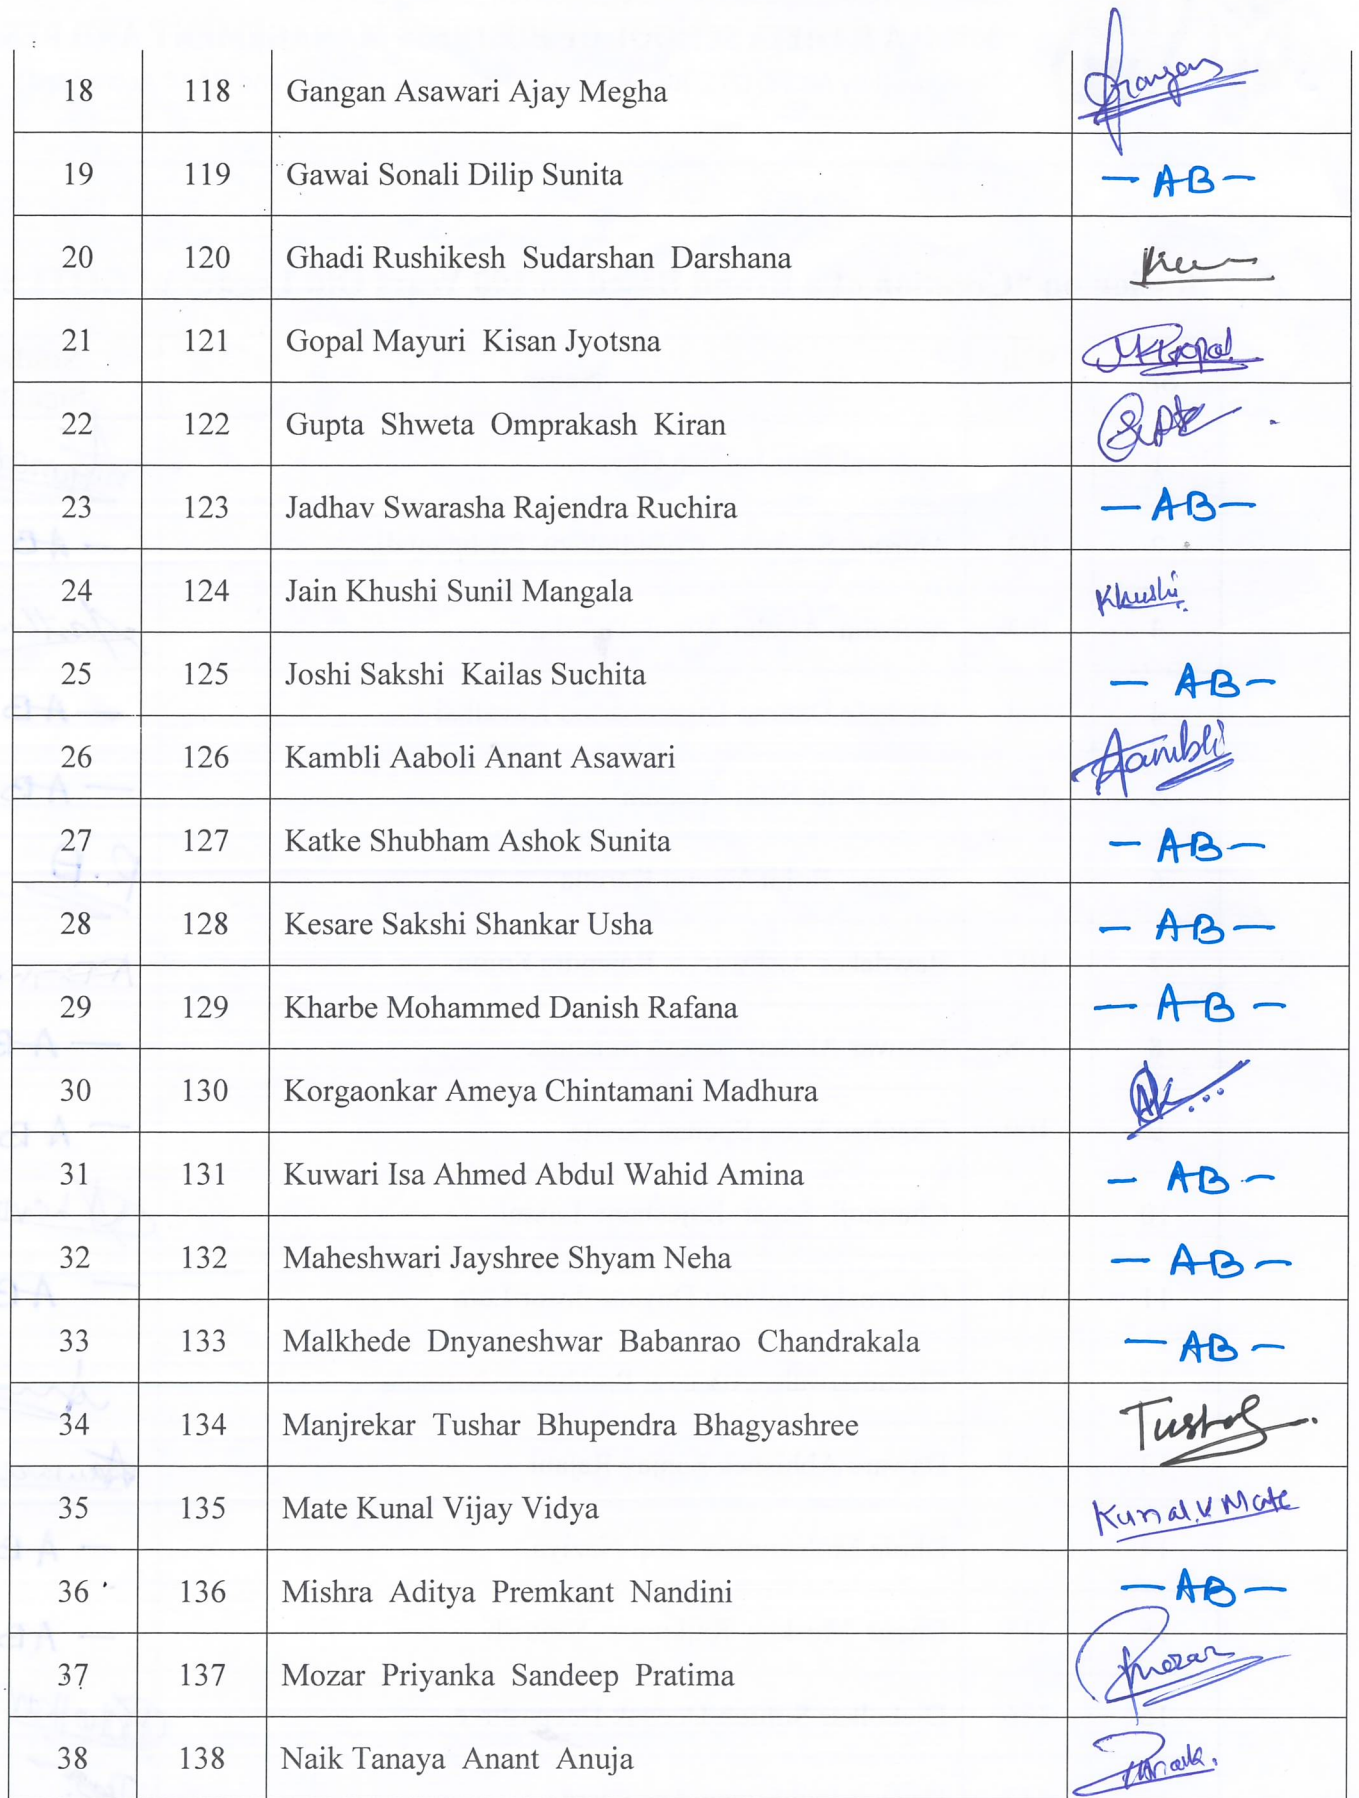 18 118 Gangan Asawari Ajay Megha
19 119 Gawai Sonali Dilip Sunita - AB -
20 120 Ghadi Rushikesh Sudarshan Darshana
21 121 Gopal Mayuri Kisan Jyotsna MKGopal
22 122 Gupta Shweta Omprakash Kiran
23 123 Jadhav Swarasha Rajendra Ruchira - AB -
24 124 Jain Khushi Sunil Mangala Khushi
25 125 Joshi Sakshi Kailas Suchita - AB -
26 126 Kambli Aaboli Anant Asawari AKambli
27 127 Katke Shubham Ashok Sunita - AB -
28 128 Kesare Sakshi Shankar Usha - AB -
29 129 Kharbe Mohammed Danish Rafana - AB -
30 130 Korgaonkar Ameya Chintamani Madhura
31 131 Kuwari Isa Ahmed Abdul Wahid Amina - AB -
32 132 Maheshwari Jayshree Shyam Neha - AB -
33 133 Malkhede Dnyaneshwar Babanrao Chandrakala - AB -
34 134 Manjrekar Tushar Bhupendra Bhagyashree Tushar
35 135 Mate Kunal Vijay Vidya Kunal.V Mate
36 136 Mishra Aditya Premkant Nandini - AB -
37 137 Mozar Priyanka Sandeep Pratima Pmozar
38 138 Naik Tanaya Anant Anuja